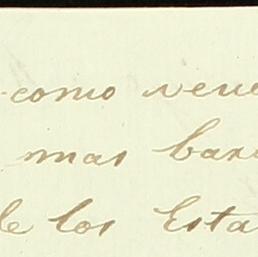 como vene
mas bara
de los Esta